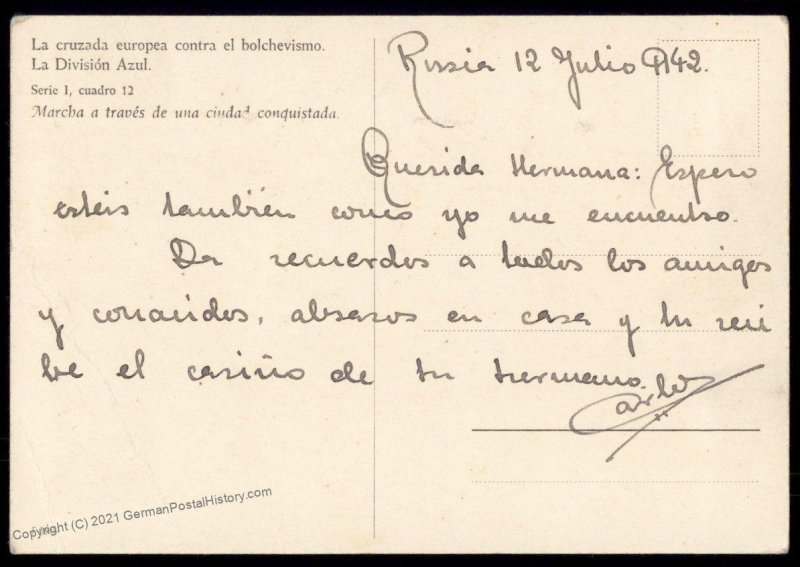 La cruzada europea contra el bolchevismo.
La División Azul.
Serie I, cuadro 12
Marcha a través de una ciudad conquistada.
Rusia 12 Julio 1942.
Querida Hermana: Espero
esteis también como yo me encuentro.
Da recuerdos a todos los amigos
y conocidos, abrazos en casa y tu reci
be el cariño de tu hermano.
Carlos
Copyright (C) 2021 GermanPostalHistory.com